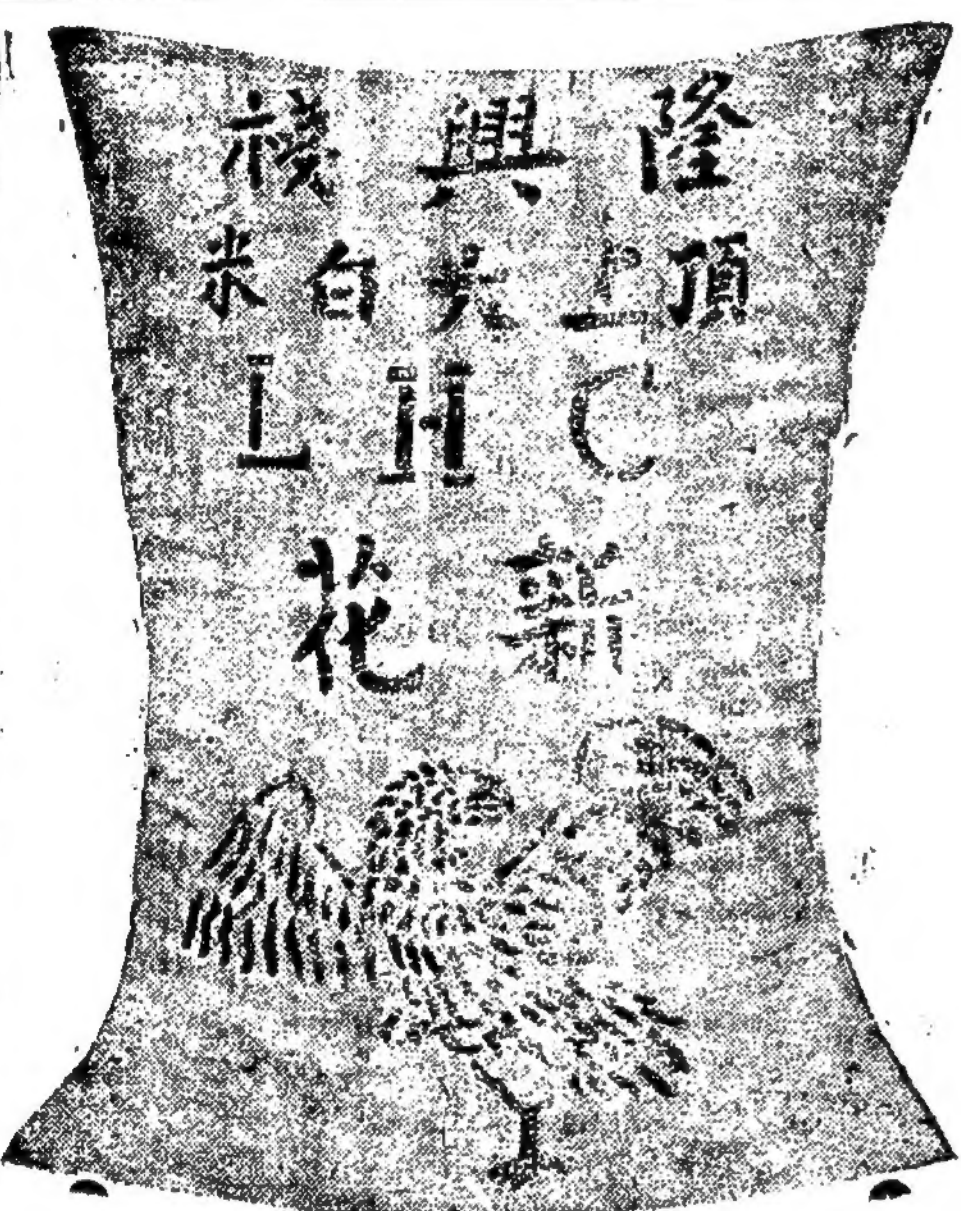 隆興棧
頂上白米
LHC
新花